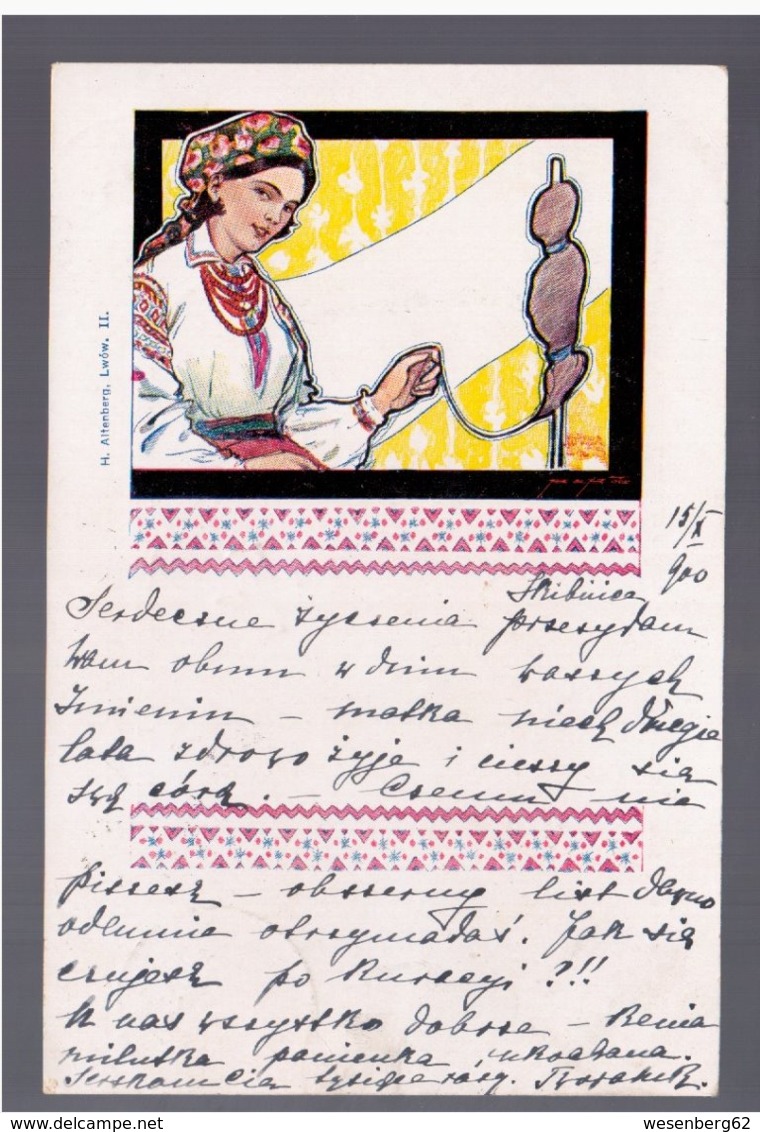 H. Altenberg, Lwów. II.
15/X
900
Skibnica
Serdeczne życzenia przesyłam
Wam obum w dniu waszych
Imienin – matka niech długie
lata zdrowo żyje i cieszy się
swą córką. – Czemu nie
piszesz – obszerny list dawno
odemnie otrzymałaś. Jak się
czujesz po kuracyi ?!!
U nas wszystko dobrze – Renia
milutka panienka ukochana.
Ściskam Cię tysiące razy.
wesenberg62
delcampe.net
wesenberg62